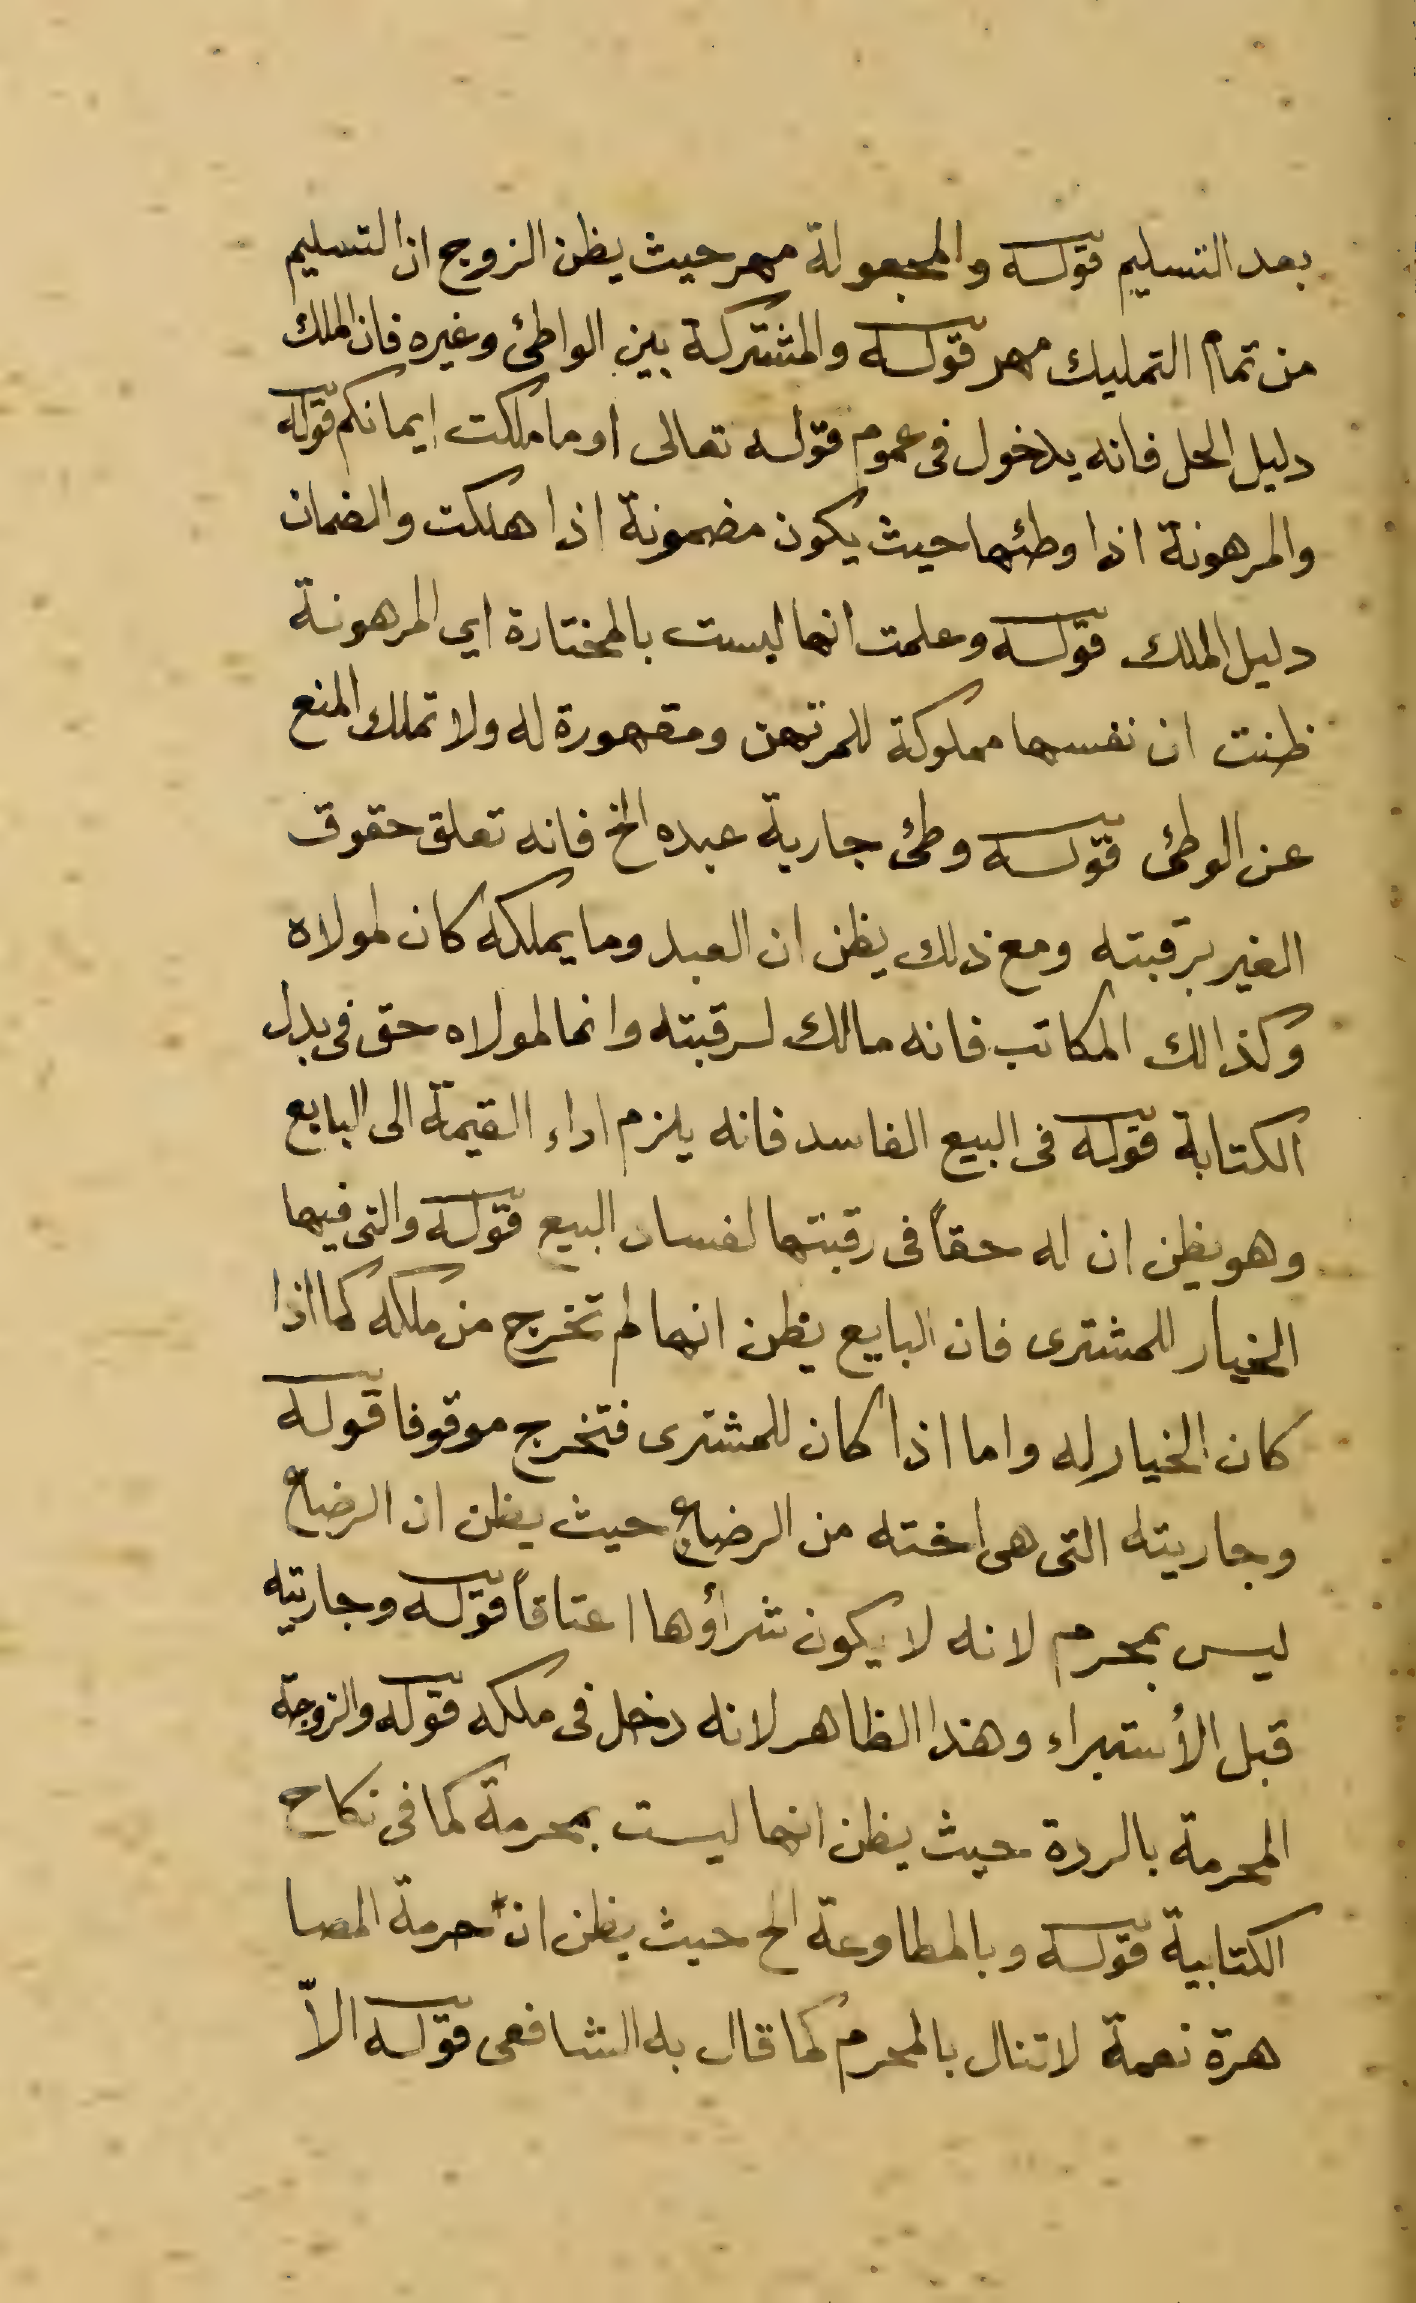 بعد التسليم قوله والمجعولة مهر حيث يظن الزوج ان التسليم
من تمام التمليك مهر قوله والمشتركة بين الواطئ وغيره فان الملك
دليل الحل فانه يدخول فى عموم قوله تعالى اوما ملكت ايمانكم قوله
والمرهونة اذا وطئها حيث يكون مضمونة اذا هلكت والضمان
دليل الملك قوله وعلمت انها ليست بالمختارة اي المرهونة
ظنت ان نفسها مملوكة للمرتهن ومقهورة له ولا تملك المنع
عن الوطئ قوله وطئ جارية عبده الخ فانه تعلق حقوق
الغير برقبته ومع ذلك يظن ان العبد وما يملكه كان لمولاه
وكذالك المكاتب فانه مالك لرقبته وانما لمولاه حق فى بدل
الكتابة قوله فى البيع الفاسد فانه يلزم اداء القيمة الى البايع
وهو يظن ان له حقاً فى رقبتها لفساد البيع قوله والتى فيها
الخيار للمشترى فان البايع يظن انها لم تخرج من ملكه كما اذا
كان الخيار له واما اذا كان للمشترى فتخرج موقوفا قوله
وجاريته التى هى اخته من الرضاع حيث يظن ان الرضاع
ليس بمحرم لانه لا يكون شرأوها اعتاقاً قوله وجاريته
قبل الأستبراء وهذا الظاهر لانه دخل فى ملكه قوله والزوجة
المحرمة بالردة حيث يظن انها ليست بمحرمة كما فى نكاح
الكتابية قوله وبالمطاوعة الخ حيث يظن ان حرمة المصا
هرة نعمة لاتنال بالمحرم كما قال به الشافعى قوله الاّ